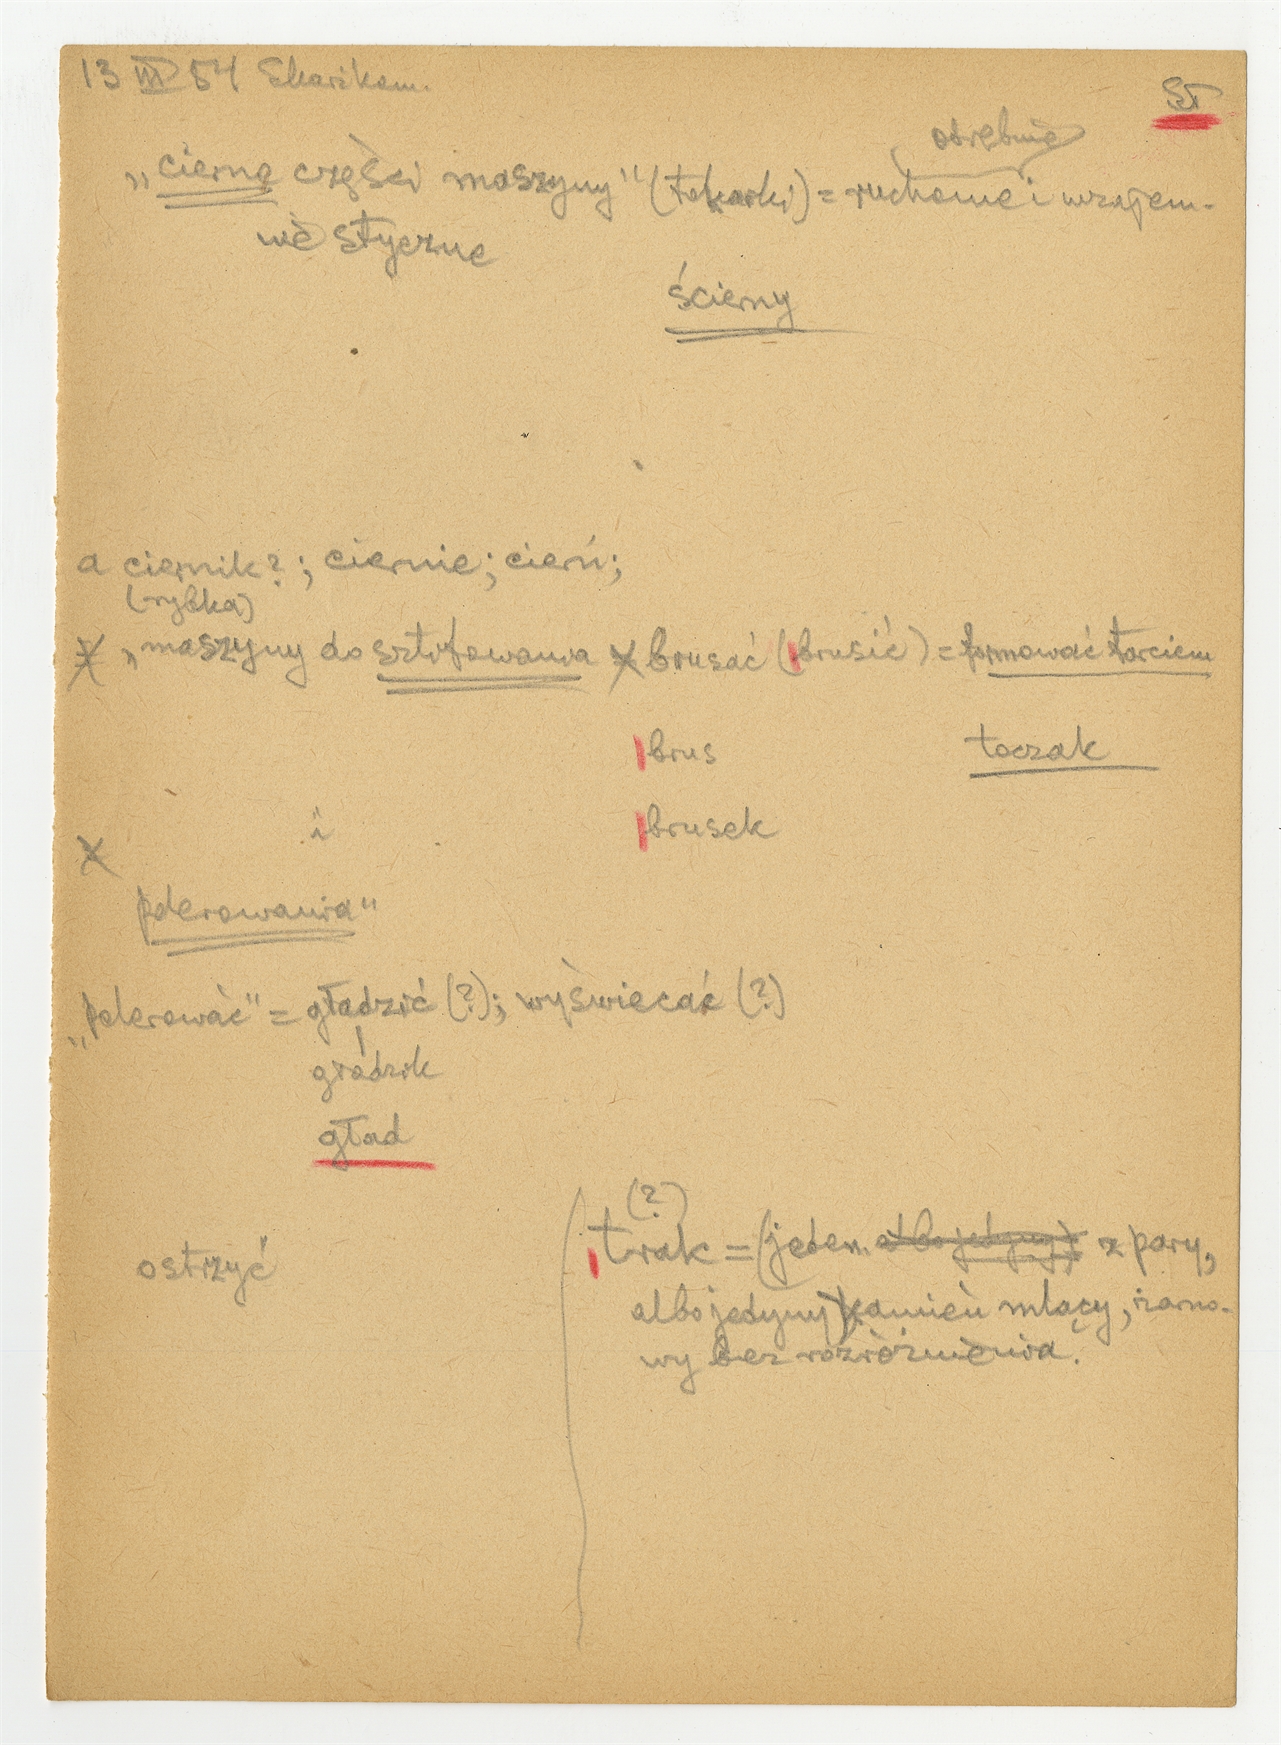 13 III 54 Skarżkam.
St
odrębnie
„cierne części maszyny" (tokarki) = ruchome i wzajem-
nie styczne
ścierny
a ciernik?; ciernie; cierń;
(rybka)
„maszyny do szlifowania brusać (brusić) = formować tarciem
brus toczak
i brusek
polerowania"
„polerować" = gładzić (?); wyświecać (?)
gładzik
gład
(?)
ostrzyć trak = (jeden albo jedyny) z pary,
albo jedyny) kamień mlący, żarno-
wy bez rozróżnienia.